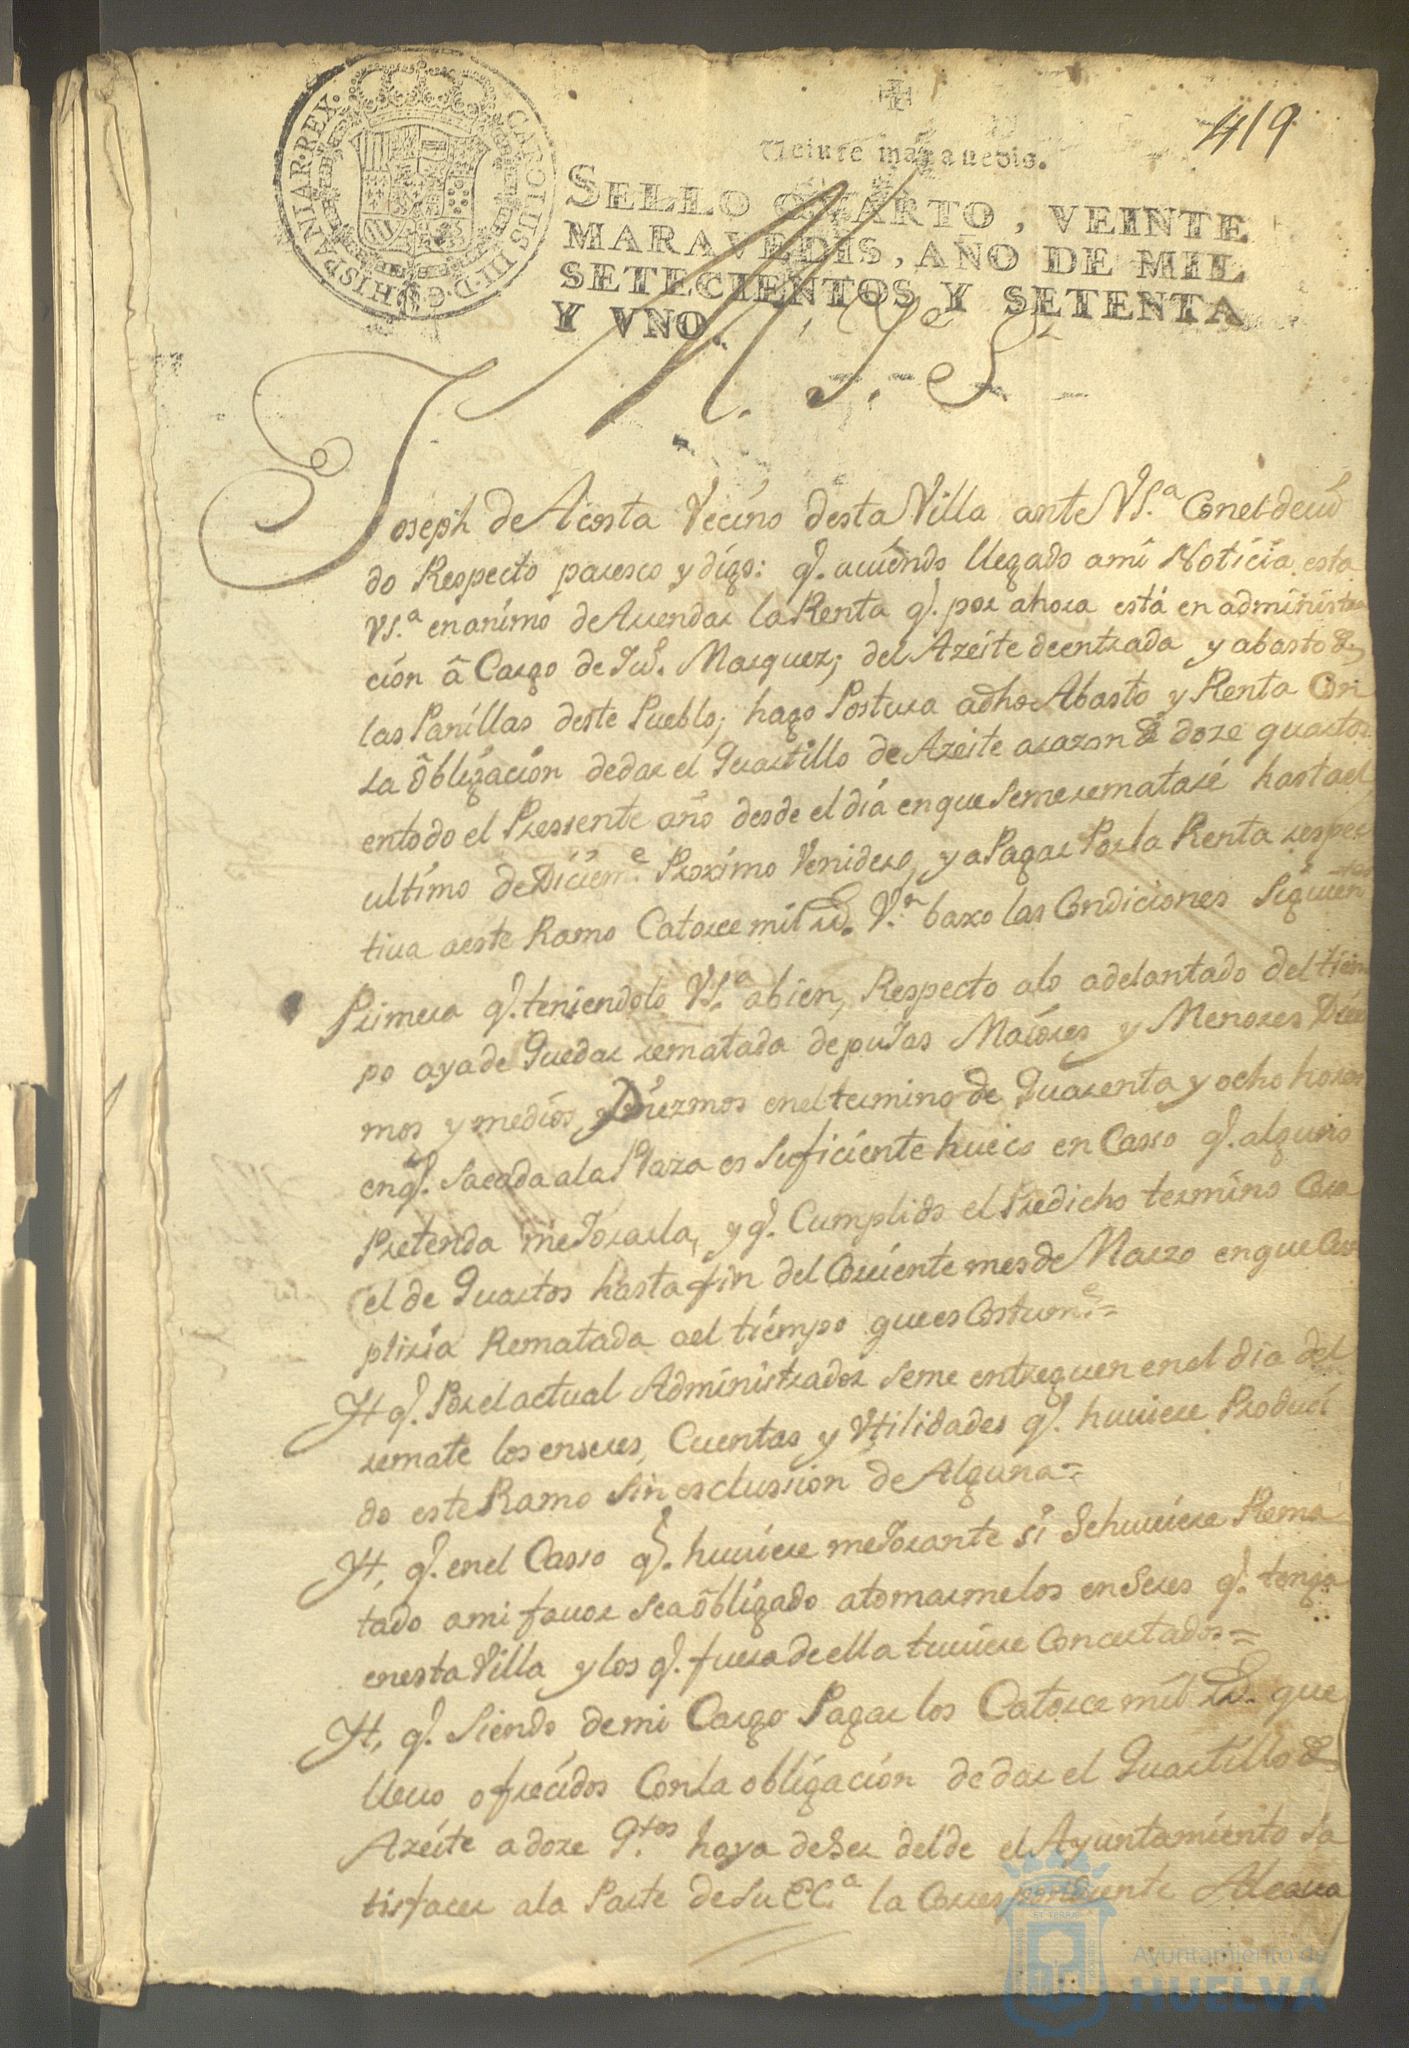 419
Veinte maravedis.
SELLO QUARTO, VEINTE
MARAVEDIS, AÑO DE MIL
SETECIENTOS Y SETENTA
Y VNO.
CAROLUS III·D·G·HISPANIAR·REX·
M. Ye S.r
Joseph de Acosta Vecino desta Villa ante VS.ª Con el deui
do Respecto paresco y digo: q.e auiendo llegado ami Noticia esta
VS.ª en animo de Arrendar la Renta q.e por ahora está en administra
ción â Cargo de Ju.º Marquez; del Azeite de entrada y abasto de
las Panillas deste Pueblo; hago Postura adho Abasto y Renta Con
La ôbligación de dar el Quartillo de Azeite arazon de doze quartos
en todo el Pressente año desde el día en que seme rematare hasta el
ultimo de Diciem.e Proximo Venidero, y a Pagar Por la Renta respec
tiua aeste Ramo Catorce mil rs. V.n baxo las Condiciones Siguien
tes
Primera q.e teniendolo VS.ª abien, Respecto alo adelantado del tiem
po aya de Quedar rematada de puJas Maiores y Menores Diez
mos y medios Diezmos en el termino de Quarenta y ocho horas
en q.e sacada ala Plaza es suficiente hueco en Casso q.e alguno
Pretenda meJorarla, y q.e Cumplido el Predicho termino Cora
el de Quartos hasta fin del Corriente mes de Marzo en que Cum
pliría Rematada ael tiémpo que es Costum.e =
Yt q.e Por el actual Administrador seme entreguen en el dia del
remate los enseres, Cuentas y Vtilidades q.e huuiere Produci
do este Ramo Sin esclussion de Alguna =
Yt, q.e en el Casso q.e huuiere meJorante si Se huuiere Rema
tado ami fauor sea ôbligado atomarme los enSeres q.e tenga
en esta Villa y los q.e fuera de ella tuuiere Concertados =
Yt, q.e Siendo de mi Cargo Pagar los Catorce mil rs. que
lleuo ofrecidos Con la obligación de dar el Quartillo de
Azeite a doze q.tos haya de Ser del de el Ayuntamiento sa
tisfacer ala Parte de Su EC.ª la Correspondiente Alcaua
Ayuntamiento de
HUELVA